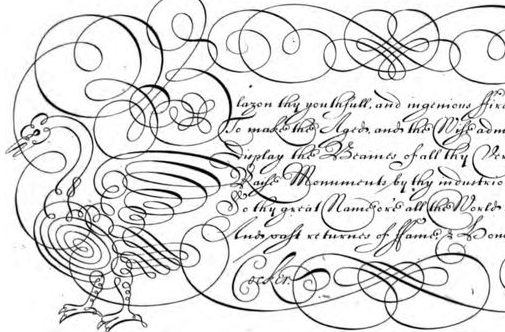 lazon thy youthfull, and ingenious ffire
To make the Aged, and the Wise adm
Display the Beames of all thy Ver
Rayse Monuments by thy industrio
To thy great Name, ore all the World
And past returnes of ffame, & Hon
Cocker.